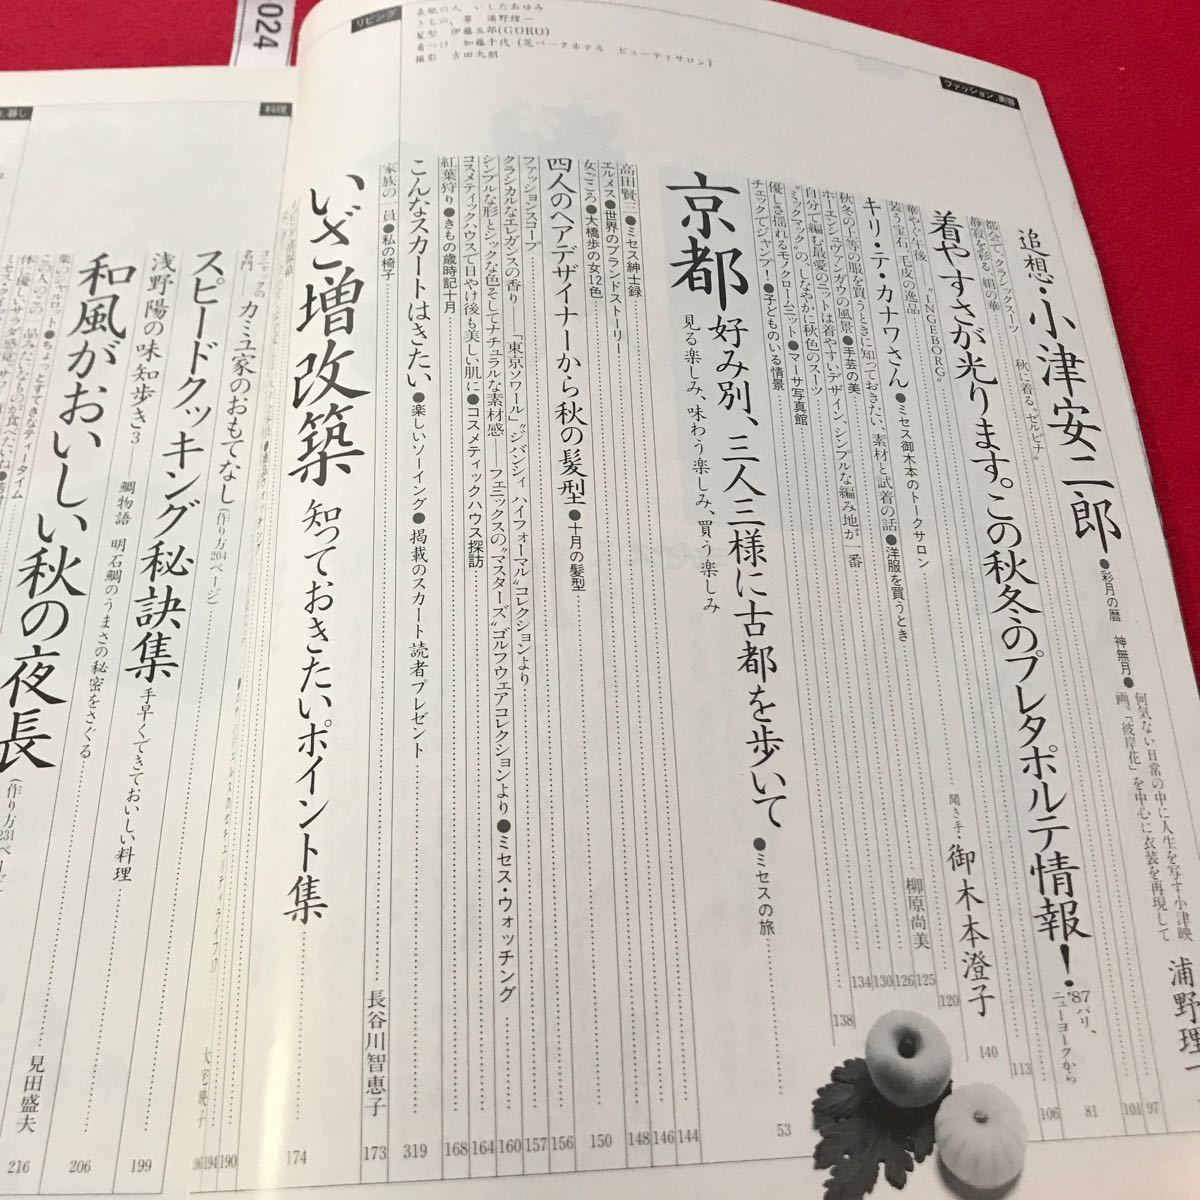 024
リビング
表紙の人　いしだあゆみ
きもの、帯　浦野理一
髪型　伊藤五郎(GORO)
着つけ　加藤千代(芝パークホテル　ビューティサロン)
撮影　吉田大朋
ファッション、美容
追想・小津安二郎
●彩月の暦　神無月●
何気ない日常の中に人生を写す小津映
画。「彼岸花」を中心に衣装を再現して
浦野理一
97
都会で、クラシックスーツ
秋に着る"ゼルビナ"
101
静寂を彩る、絹の華
106
着やすさが光ります。この秋冬のプレタポルテ情報!
'87パリ、
ニューヨークから
81
"INGEBORG"
113
華やぐ午後
装う宝石、毛皮の逸品
120
キリ・テ・カナワさん
●ミセス御木本のトークサロン
聞き手・御木本澄子
140
秋冬の上等の服を買うときに知っておきたい、素材と試着の話●洋服を買うとき
柳原尚美
125
ホーエンシュヴァンガウの風景●手芸の美
126
自分で編む最愛のニットは着やすいデザイン、シンプルな編み地が一番
130
"ミックマック"の、しなやかに秋色のスーツ
134
優しさ揺れるモノクロームニット●マーサ写真館
138
チェックでジャンプー!●子どものいる情景
京都
好み別、三人三様に古都を歩いて
見る楽しみ、味わう楽しみ、買う楽しみ
●ミセスの旅
53
高田賢三●ミセス紳士録
144
エルメス●世界のブランドストーリー
146
女ごころ●大橋歩の女12色
148
四人のヘアデザイナーから秋の髪型●十月の髪型
150
ファッションスコープ
156
クラシカルなエレガンスの香り——「東京ソワール」"ジバンシィ ハイフォーマル"コレクションより
157
シンプルな形とシックな色そしてナチュラルな素材感——フェニックスの"マスターズ"ゴルフウェアコレクションより●ミセス・ウォッチング
160
コスメティックハウスで日やけ後も美しい肌に●コスメティックハウス探訪
164
紅葉狩り●きもの歳時記十月
168
こんなスカートはきたい●楽しいソーイング●掲載のスカート読者プレゼント
319
家族の一員●私の椅子
長谷川智恵子
173
いざ増改築
知っておきたいポイント集
174
料理
190
名門
コニャックのカミュ家のおもてなし(作り方204ページ)
194
スピードクッキング秘訣集
手早くできておいしい料理
199
浅野陽の味知歩き3
鯛物語　明石鯛のうまさの秘密をさぐる
206
和風がおいしい秋の夜長
(作り方231ページ)
見田盛夫
216
暮し